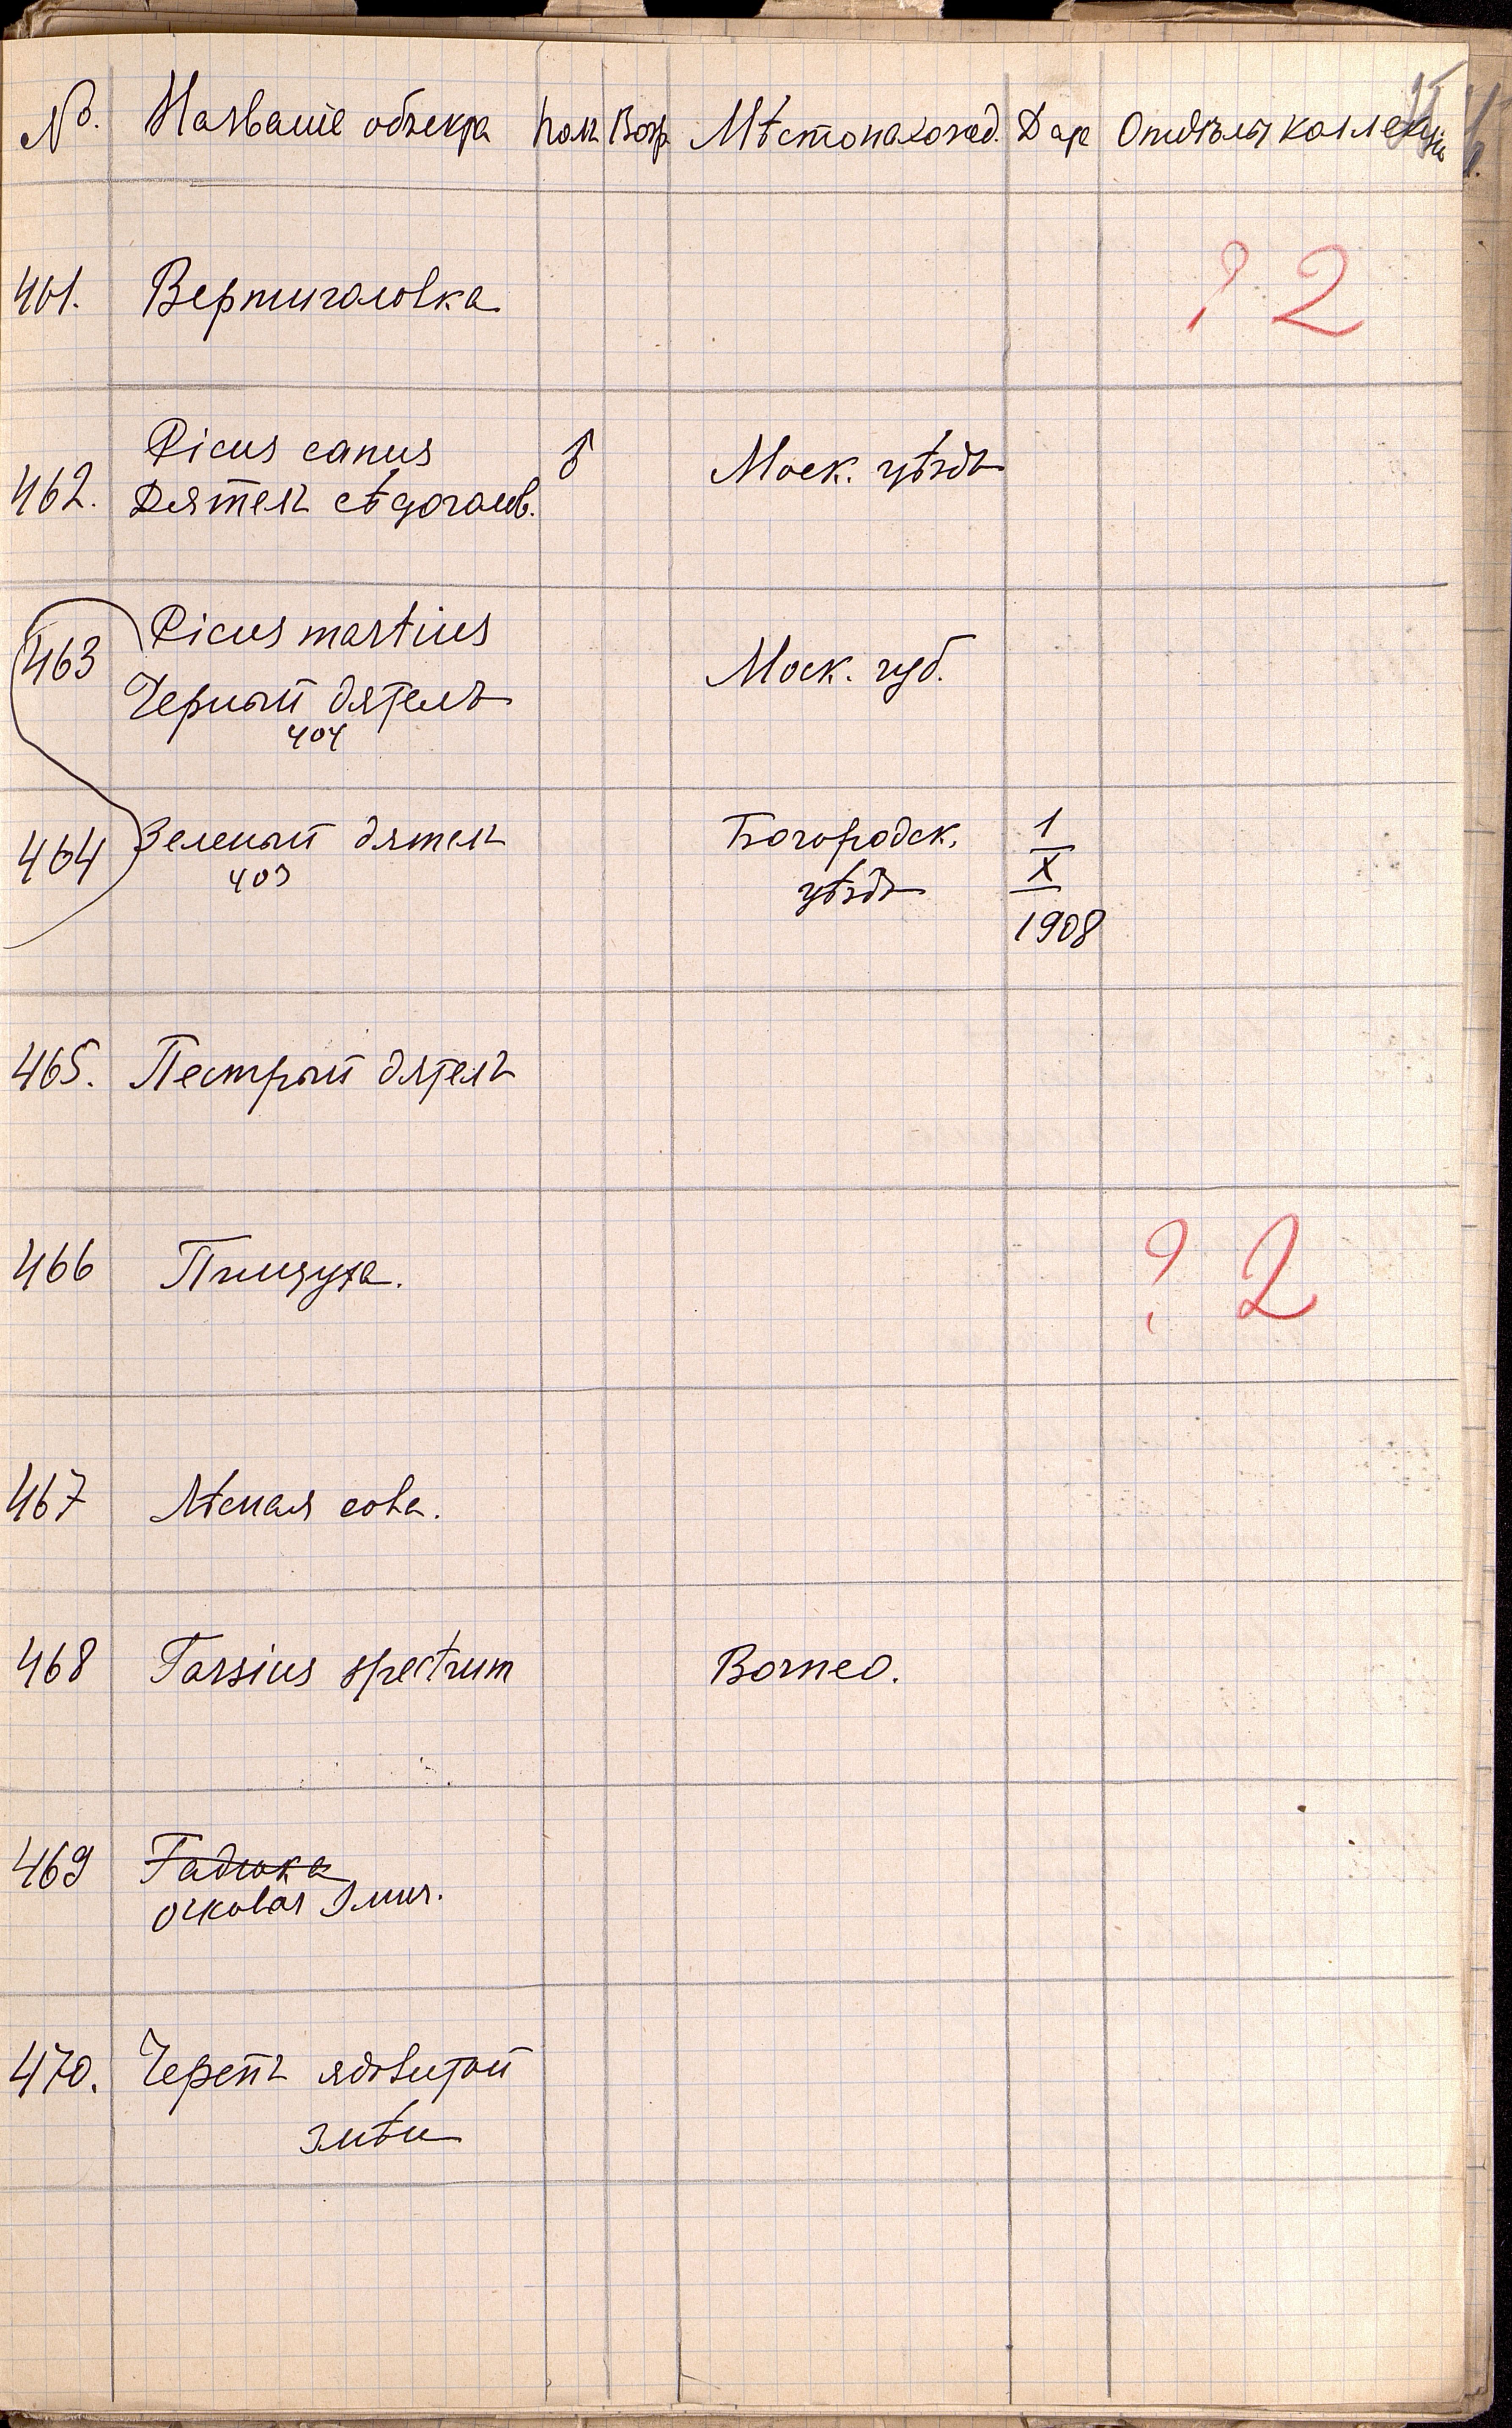 №. Названіе объекта Полъ Возр. Мѣстонахожд. Дар Отдѣлы коллекціи
461. Вертиголовка ? 2
Picus canus ♂ Моск. уѣздъ
462. Дятелъ сѣдоголов.
463 Picus martius Моск. губ.
Черный дятелъ
404
464 Зеленый дятелъ Богородск. 1
403 уѣздъ X
1908
465. Пестрый дятелъ
466 Пищуха. ? 2
467 Лѣсная сова.
468 Tarsius spectrum Borneo.
469 Гадюка
очковая змѣя.
470. Черепъ ядовитой
змѣи